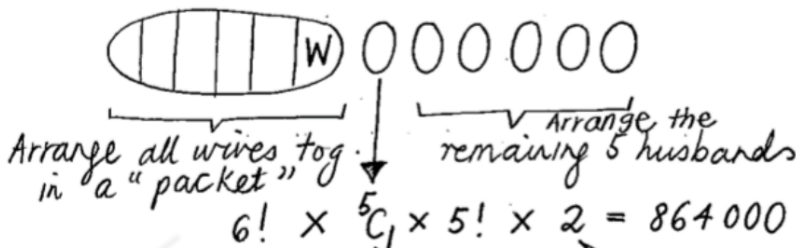 W
Arrange all wives tog.
in a "packet"
Arrange the
remaining 5 husbands
6! × ⁵C₁ × 5! × 2 = 864000